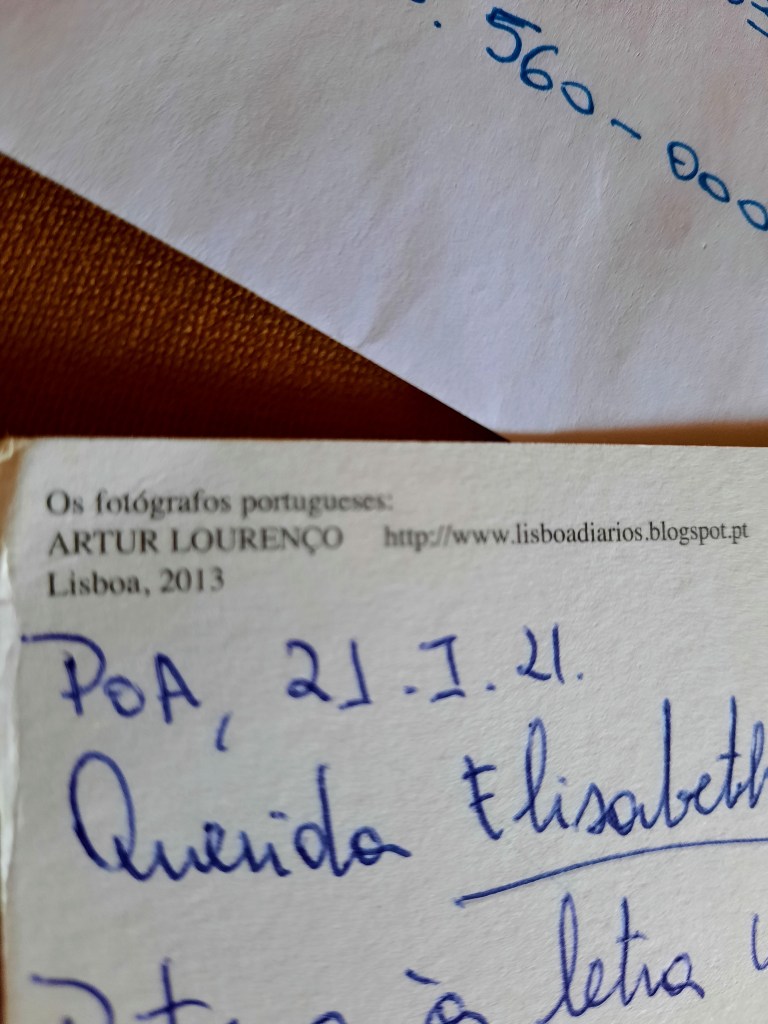 560-000
Os fotógrafos portugueses:
ARTUR LOURENÇO http://www.lisboadiarios.blogspot.pt
Lisboa, 2013
POA, 21.I.21.
Querida Elisabeth
à letra